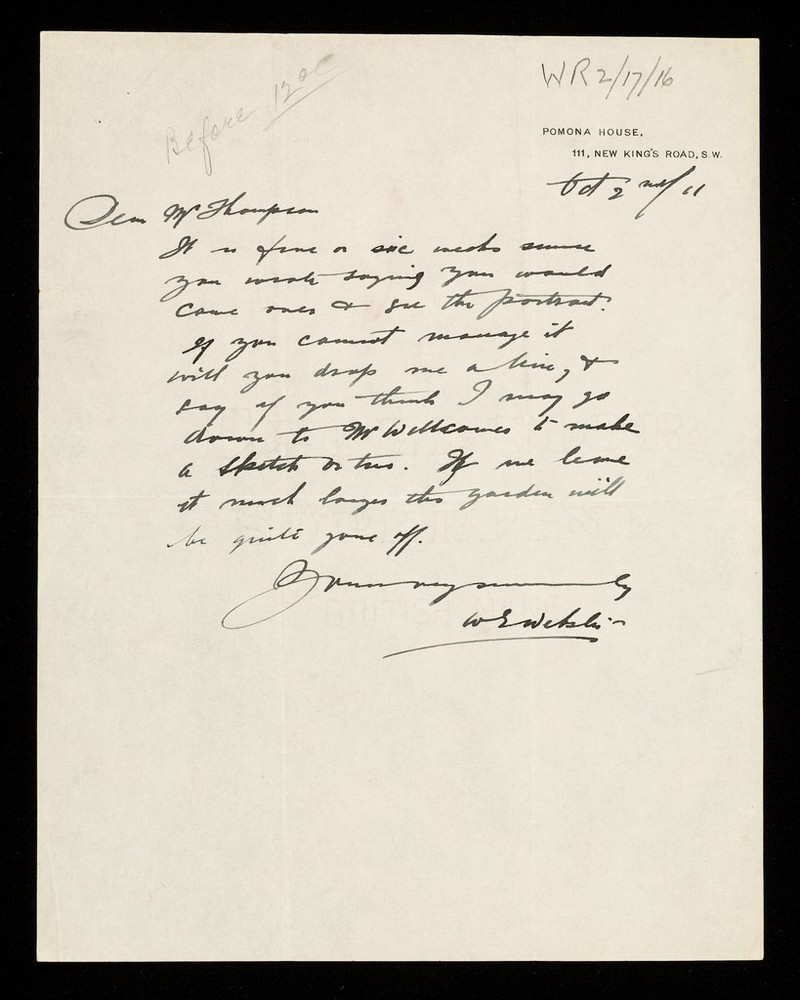 WR 2/17/16
Before 12 oc
POMONA HOUSE,
111, NEW KING'S ROAD, S.W.
Oct 2nd/11
Dear Mr Thompson
It is five or six weeks since
you wrote saying you would
come over & see the portrait.
If you cannot manage it
will you drop me a line, &
say if you think I may go
down to Mr Wellcomes to make
a sketch or two. If we leave
it much longer the garden will
be quite gone off.
Yours very sincerely
W E Webster